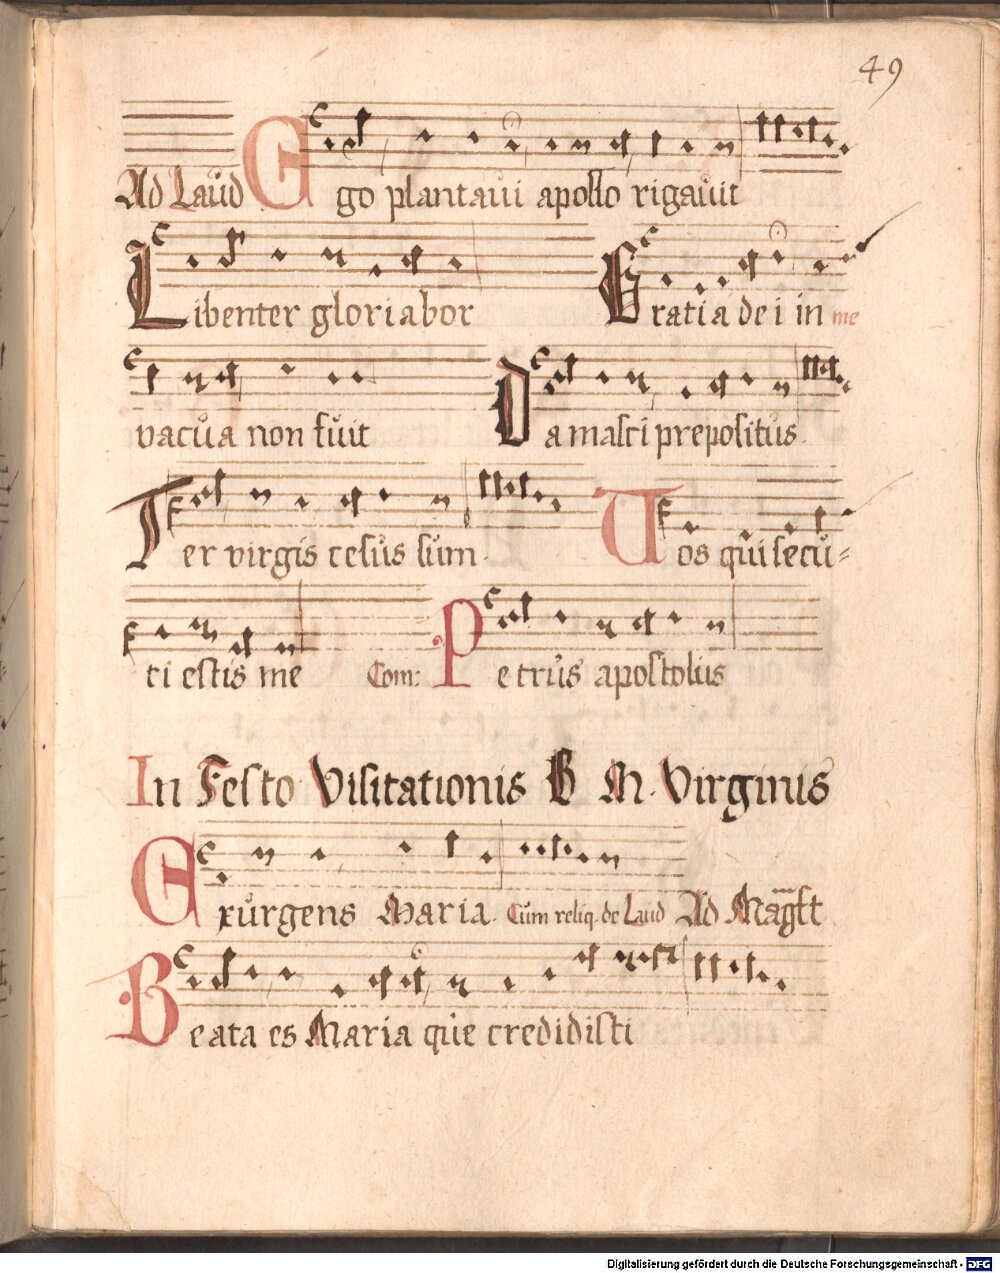 49
Ad Laud Ego plantaui apollo rigauit
Libenter gloriabor Gratia dei in me
vacua non fuit Damasci prepositus.
Ter virgis cesus sum. Uos qui secu-
ti estis me Com: Petrus apostolus
In Festo Visitationis B M. Virginis
Exurgens Maria. Cum reliq. de Laud Ad Magft
Beata es Maria que credidisti
Digitalisierung gefördert durch die Deutsche Forschungsgemeinschaft - DFG